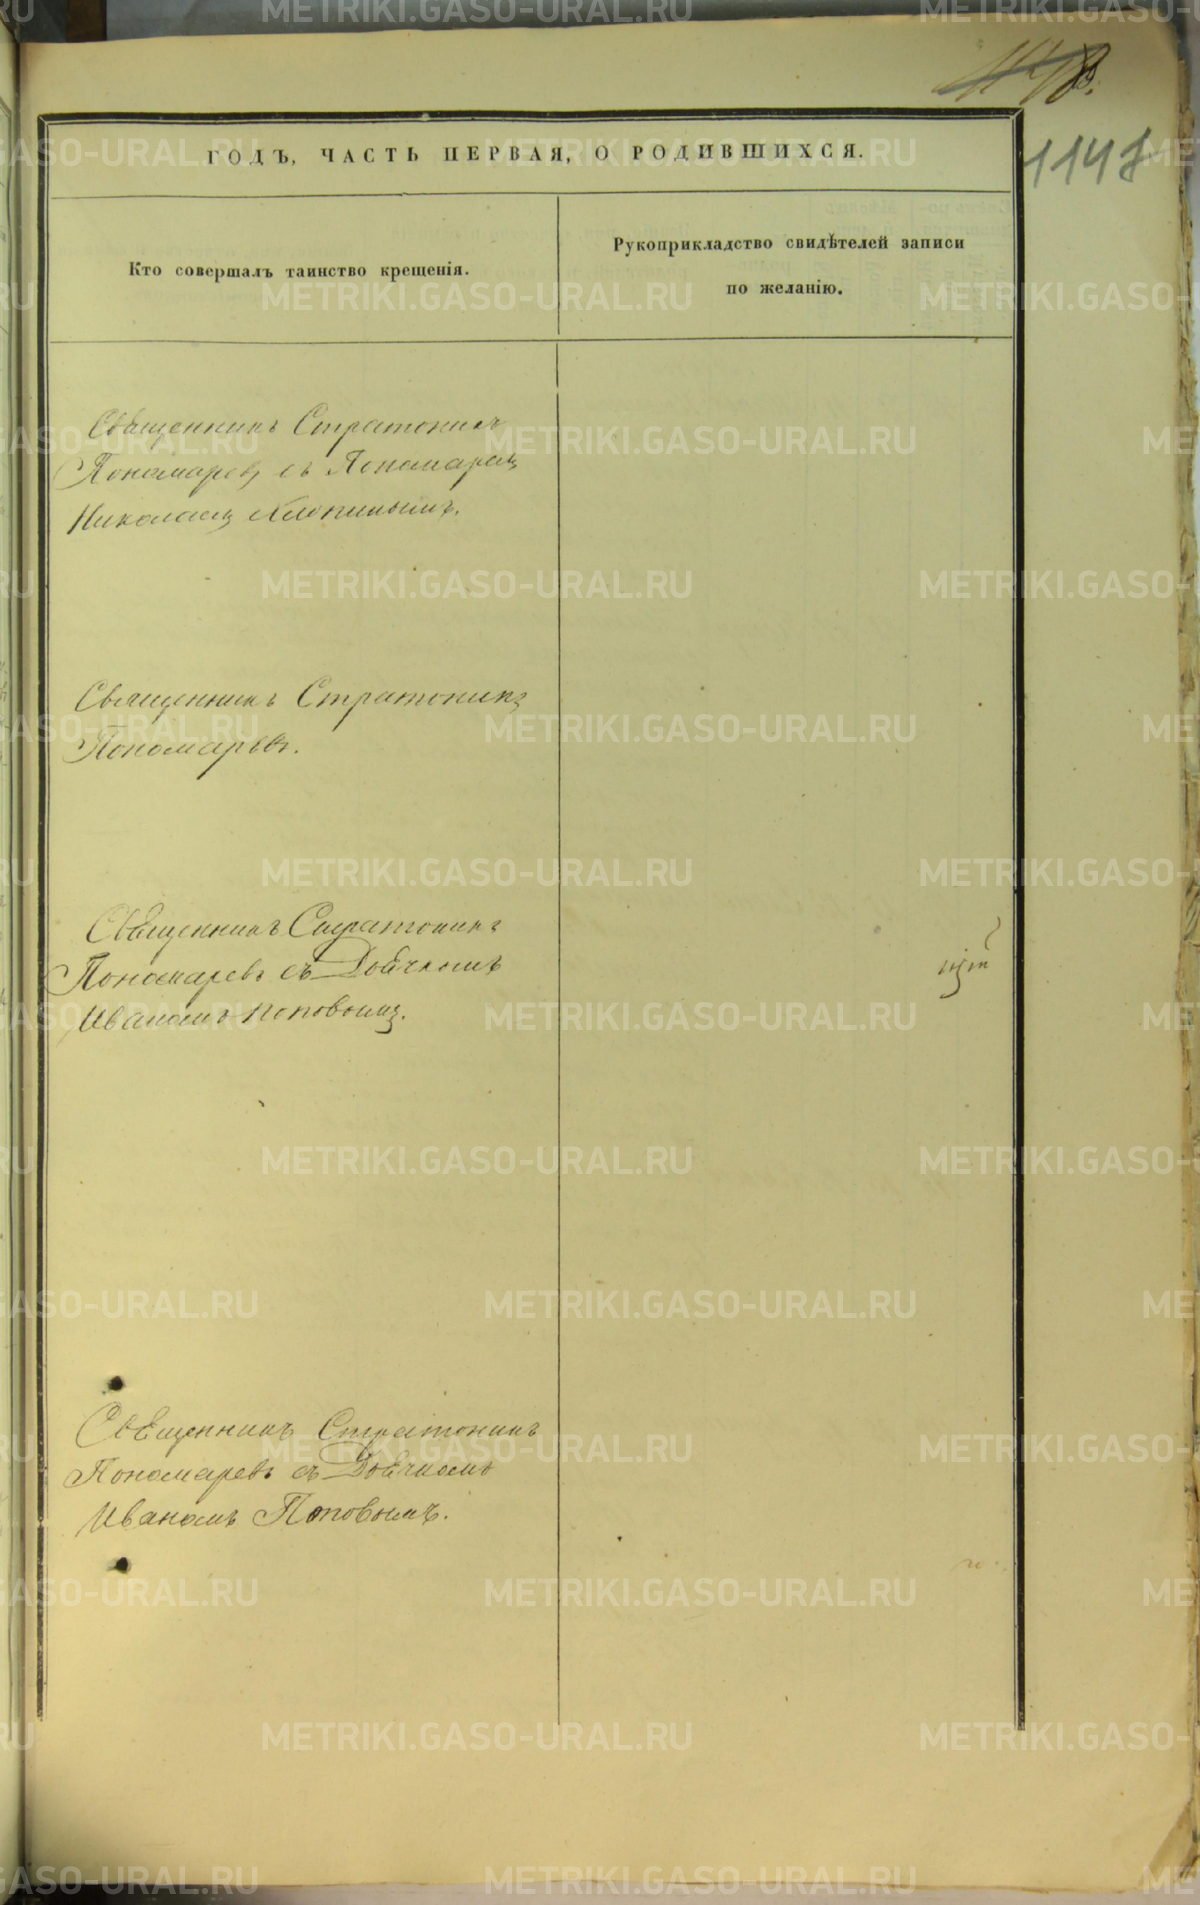 1148
ГОДЪ, ЧАСТЬ ПЕРВАЯ, О РОДИВШИХСЯ.
Кто совершалъ таинство крещенія.
Рукоприкладство свидѣтелей записи
по желанію.
Священникъ Стратоникъ
Пономаревъ съ Пономаремъ
Николаемъ
Священникъ Стратоникъ
Пономаревъ.
Священникъ Стратоникъ
Пономаревъ съ Дьячкомъ
Иваномъ Поповымъ.
Священникъ Стратоникъ
Пономаревъ съ Дьячкомъ
Иваномъ Поповымъ.
METRIKI.GASO-URAL.RU